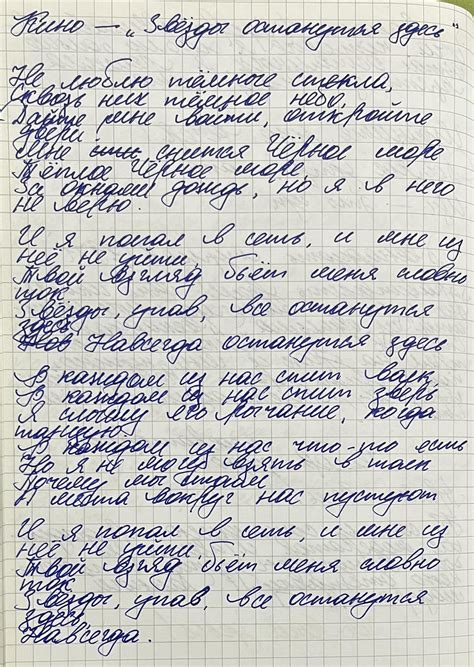 Кино — „Звёзды останутся здесь"
Не люблю тёмные стёкла,
Сквозь них тёмное небо,
Дайте мне войти, откройте
двери.
Мне снится Чёрное море
Тёплое Чёрное море,
За окнами дождь, но я в него
не верю.
И я попал в сеть, и мне из
неё не уйти,
Твой взгляд бьёт меня словно
ток.
Звёзды, упав, все останутся
здесь,
Навсегда останутся здесь
В каждом из нас спит волк,
В каждом из нас спит зверь,
Я слышу его рычание, когда
танцую.
В каждом из нас что-то есть
Но я не могу взять в толк
Почему мы стоим
А места вокруг нас пустуют
И я попал в сеть, и мне из
неё не уйти,
Твой взгляд бьёт меня словно
ток
Звёзды, упав, все останутся
здесь,
Навсегда.